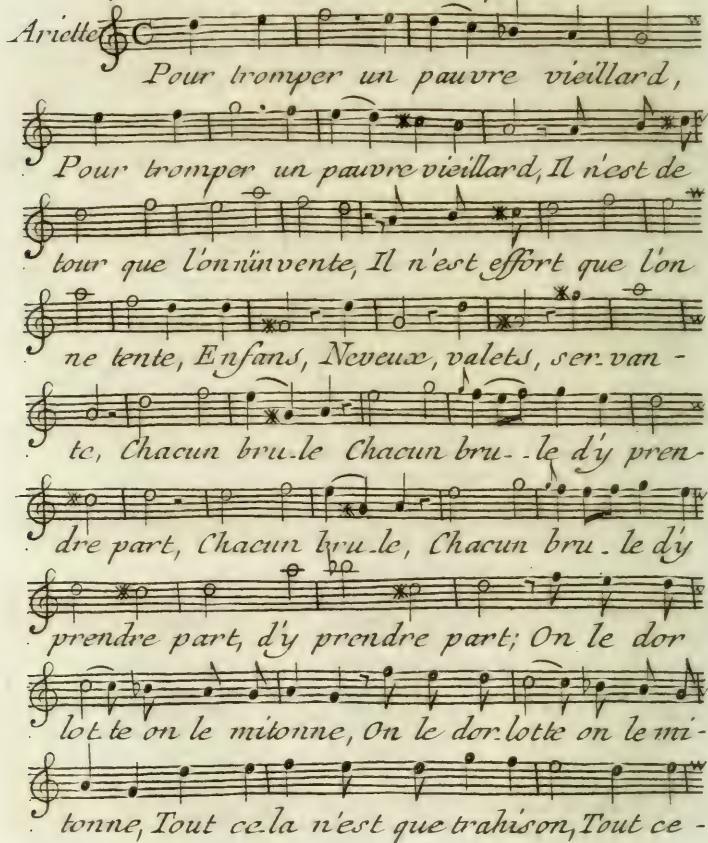 Ariette
Pour tromper un pauvre vieillard,
Pour tromper un pauvre vieillard, Il n'est de
tour que l'on n'invente, Il n'est effort que l'on
ne tente, Enfans, Neveux, valets, ser-van-
te, Chacun bru-le Chacun bru--le d'y pren-
dre part, Chacun bru-le, Chacun bru-le d'y
prendre part, d'y prendre part; On le dor
lot-te on le mitonne, On le dor-lotte on le mi-
tonne, Tout ce-la n'est que trahison, Tout ce-